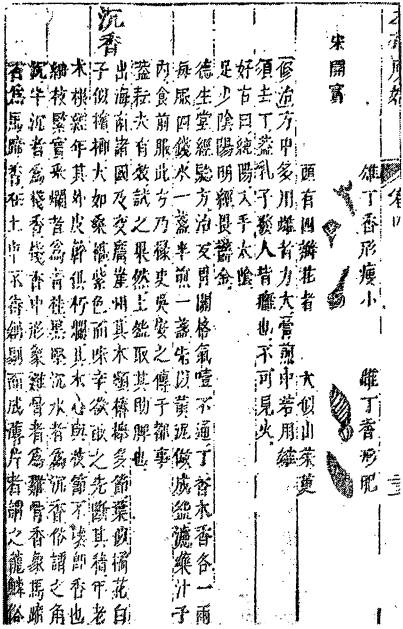 本草原始 卷四
雄丁香形瘦小 雌丁香形肥
宋開寶
頭有四瓣花者 大似山茱萸
修治方中多用雌者力大膏煎中若用雄
須去丁蓋乳子發人背癰也不可見火
好古曰純陽入手太陰
足少陰陽明經畏鬱金
德生堂經驗方治反胃關格氣噎不通丁香木香各一兩
每服四錢水一盞半煎一盞先以黃泥做成盌濾藥汁于
內食前服此方乃掾史吳安之傳于都事
蓋耘夫有效試之果然土盌取其助脾也
沉香
出海南諸國及交廣崖州其木類椿櫸多節葉似橘花白
子似檳榔大如桑椹紫色而味辛欲取之先斷其積年老
木根經年其外皮幹俱朽爛其木心與枝節不壞即香也
細枝緊實未爛者為青桂黑堅沉水者為沉香俗謂之角
沉半沉者為棧香棧香中形象雞骨者為雞骨香象馬蹄
者為馬蹄香在土中不待創剔而成薄片者謂之龍鱗俗